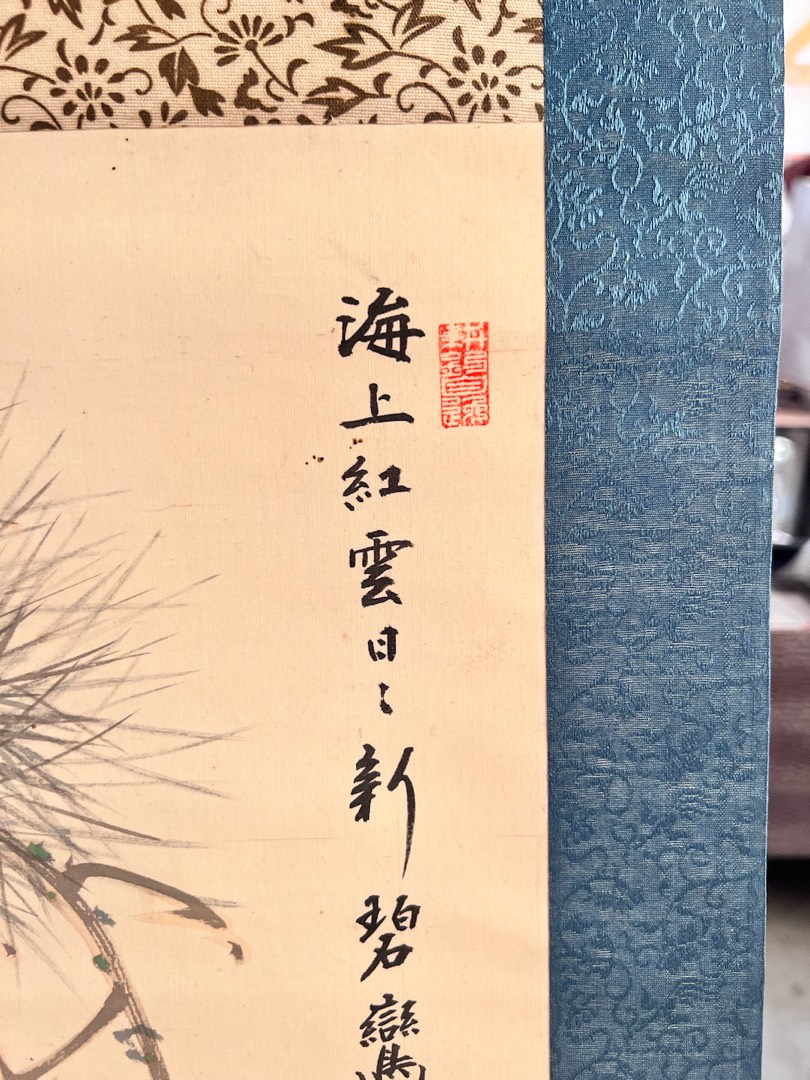 海上紅雲日〻新碧鸞